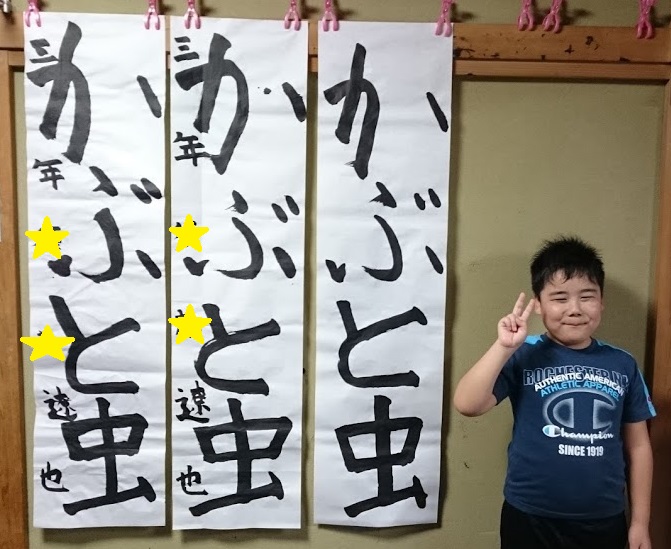 かぶと虫
かぶと虫
三年 遼也
かぶと虫
三年 遼也
ROCHESTER
AUTHENTIC AMERICAN
ATHLETIC APPAREL
Champion
SINCE 1919